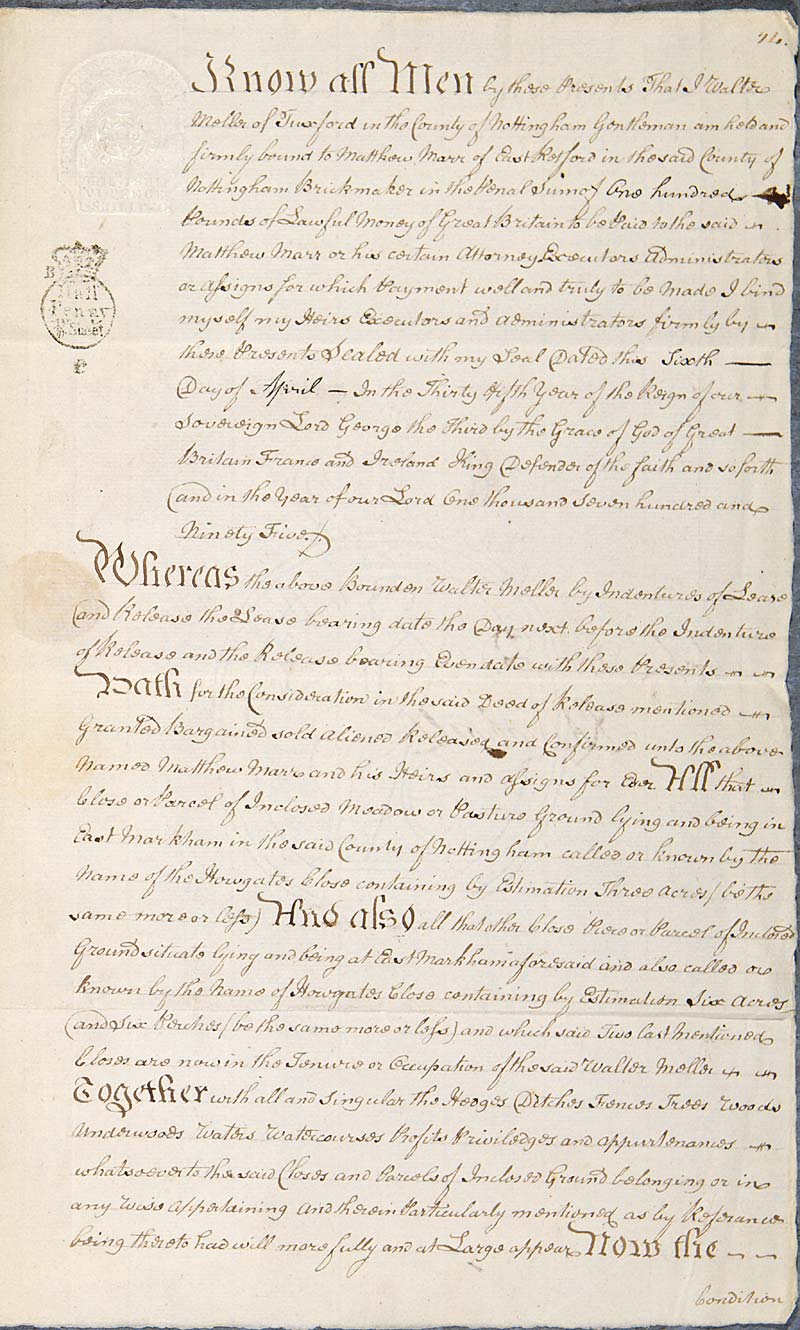 Know all Men by these Presents That I Walter
Meller of Tuxford in the County of Nottingham Gentleman am held and
firmly bound to Matthew Marr of East Retford in the said County of
Nottingham Brickmaker in the Penal Sum of One hundred
Pounds of Lawful Money of Great Britain to be Paid to the said
Matthew Marr or his certain Attorney Executors Administrators
or assigns for which Payment well and truly to be Made I bind
myself my Heirs Executors and administrators firmly by
these Presents Sealed with my Seal Dated this Sixth
Day of April – In the Thirty fifth Year of the Reign of our
Sovereign Lord George the Third by the Grace of God of Great
Britain France and Ireland King Defender of the faith and so forth
and in the Year of our Lord One thousand Seven hundred and
Ninety Five.
Half
Penny
Sheet
Whereas the above Bounden Walter Meller by Indentures of Lease
and Release the Lease bearing date the Day next before the Indenture
of Release and the Release bearing Even date with these Presents
Hath for the Consideration in the said Deed of Release mentioned
Granted Bargained sold aliened Released and Confirmed unto the above
Named Matthew Marr and his Heirs and assigns for Ever All that
Close or Parcel of Inclosed Meadow or Pasture Ground lying and being in
East Markham in the said County of Nottingham called or known by the
Name of the Howgates Close containing by Estimation Three Acres (be the
same more or less) And also all that other Close Piece or Parcel of Inclosed
Ground situate lying and being at East Markham aforesaid and also called or
known by the Name of Howgates Close containing by Estimation Six Acres
and Six Perches (be the same more or less) and which said Two last Mentioned
Closes are now in the Tenure or Occupation of the said Walter Meller
Together with all and singular the Hedges Ditches Fences Trees Woods
Underwoods Waters Watercourses Profits Priviledges and appurtenances
whatsoever to the said Closes and Parcels of Inclosed Ground belonging or in
any Wise Appertaining and therein Particularly mentioned as by Referance
being thereto had will more fully and at Large appear Now the
Condition